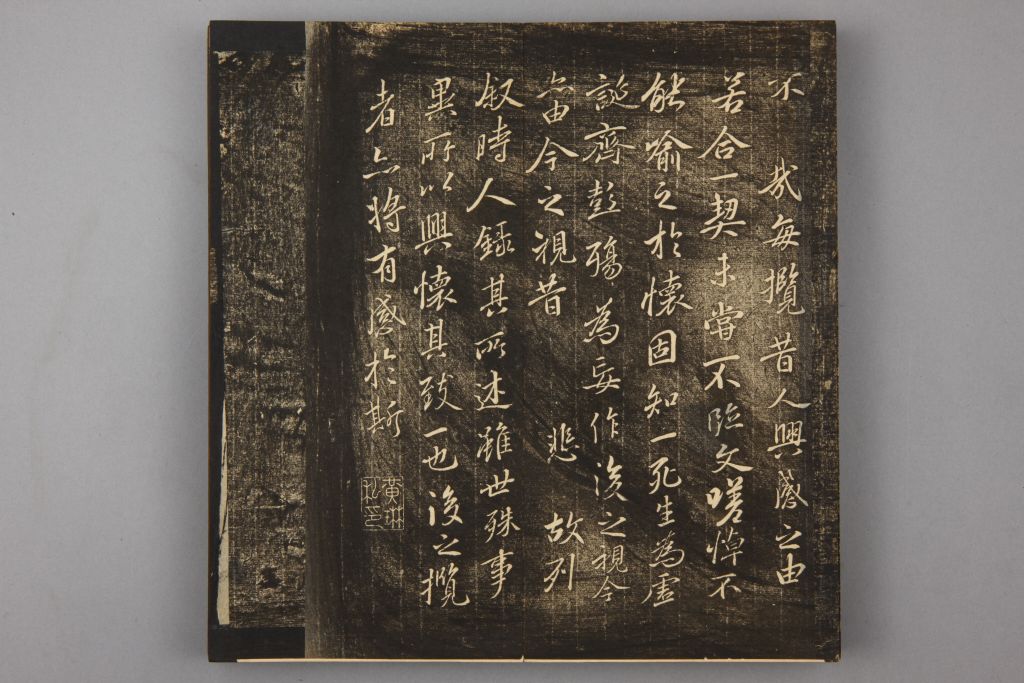 不哉每攬昔人興感之由
若合一契未嘗不臨文嗟悼不
能喻之於懷固知一死生為虛
誕齊彭殤為妄作後之視今
亦由今之視昔悲故列
叙時人錄其所述雖世殊事
異所以興懷其致一也後之攬
者亦將有感於斯